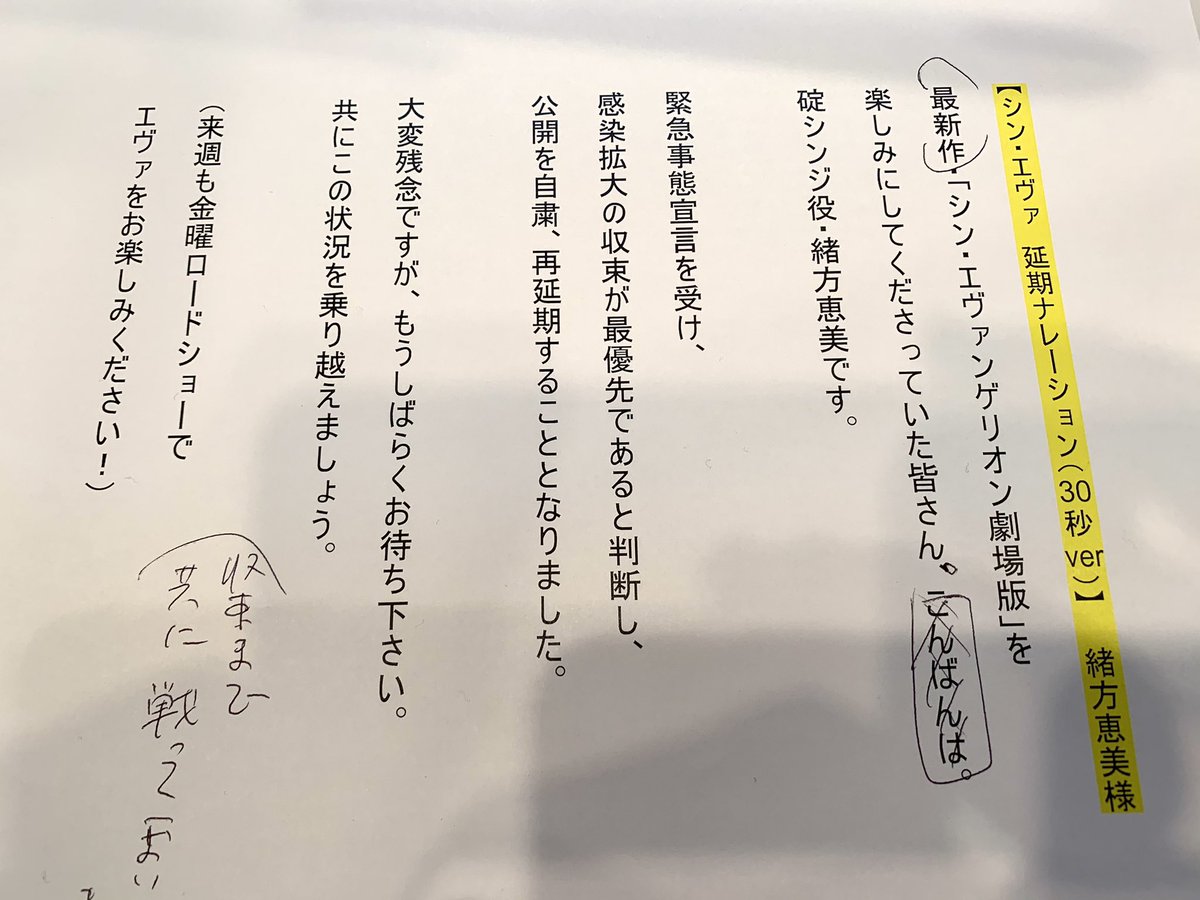 【シン・エヴァ 延期ナレーション(30秒ver)】 緒方恵美様
最新作・「シン・エヴァンゲリオン劇場版」を
楽しみにしてくださっていた皆さん。こんばんは。
碇シンジ役・緒方恵美です。
緊急事態宣言を受け、
感染拡大の収束が最優先であると判断し、
公開を自粛、再延期することとなりました。
大変残念ですが、もうしばらくお待ち下さい。
共にこの状況を乗り越えましょう。
(来週も金曜ロードショーで
エヴァをお楽しみください!)
収束まで
共に戦って